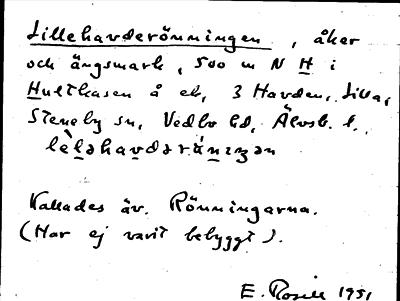 Lillehavderönningen, åker
och ängsmark, 500 m N H i
Hultkasen å ek, 3 Havden, Lilla,
Steneby sn, Vedbo hd, Älvsb. l.
lèləhavdəränıŋən
Kallades äv. Rönningarna.
(Har ej varit bebyggt).
E. Rosell 1931